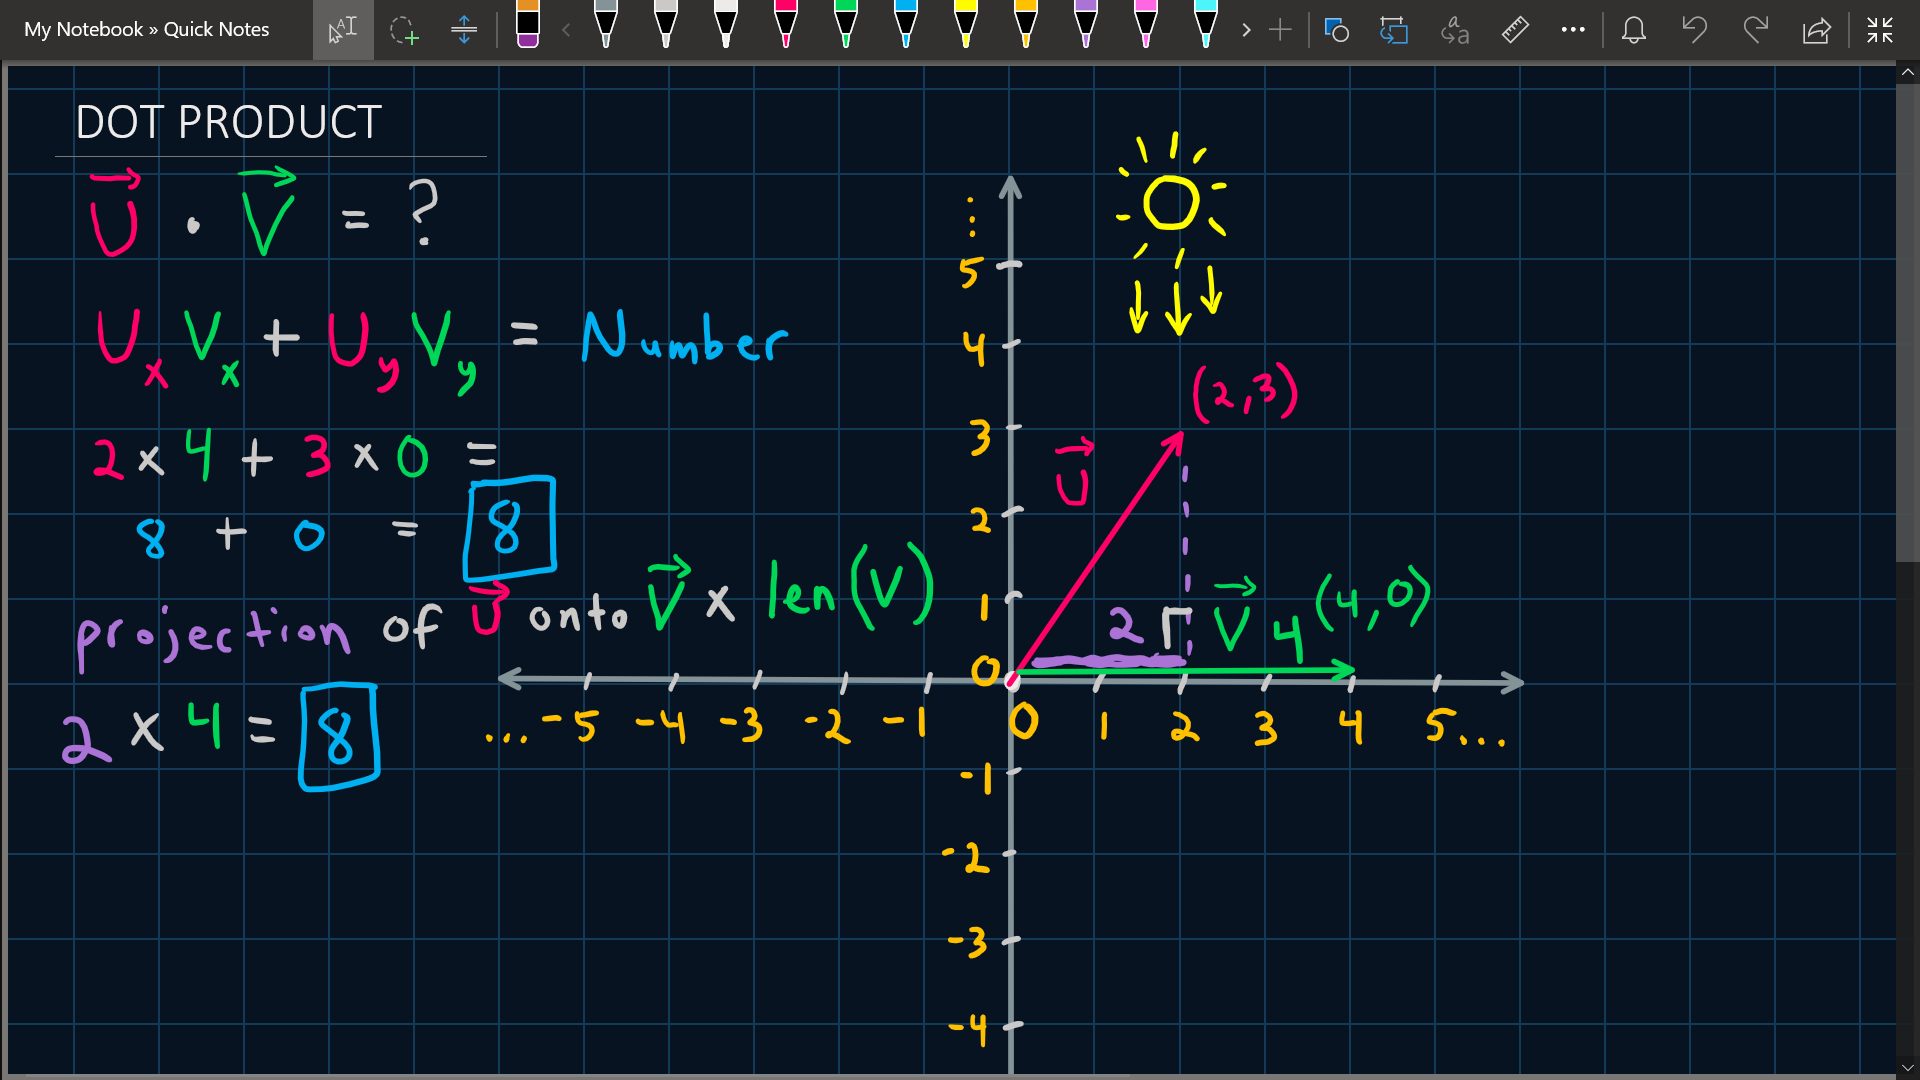 My Notebook » Quick Notes
DOT PRODUCT
U · V = ?
Ux Vx + Uy Vy = Number
2 x 4 + 3 x 0 =
8 + 0 = 8
projection of U onto V x len(V)
2 x 4 = 8
5
4
3
2
1
0
(2,3)
U
2
V 4 (4,0)
... -5 -4 -3 -2 -1 0 1 2 3 4 5...
-1
-2
-3
-4